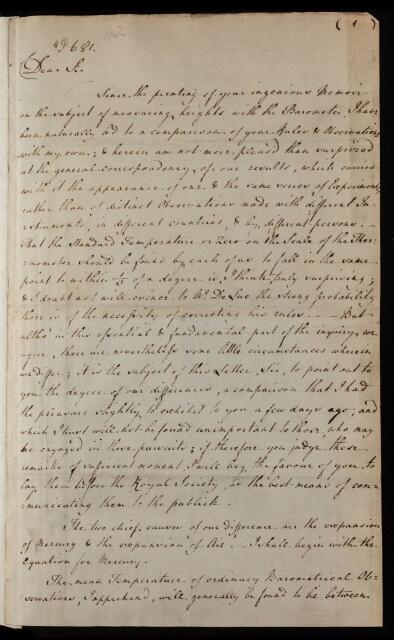 ( 1 )
4th 681.
Dear Sir
Since the printing of your ingenious Memoir
on the subject of measuring heights with the Barometer I have
been naturally led to a comparison of your Rules & Observations
with my own; & herein am not more pleas'd than surprized
at the general correspondency of our results, which carries
with it the appearance of one & the same series of Experiments,
rather than of distinct Observations made with different In-
-struments, in different countries, & by different persons. -
That the Standard Temperature or zero on the Scale of the Ther-
-mometer should be found by each of us to fall in the same
point to within of a degree is, I think, truly surprising;
& I doubt not will evince to Mr. De Luc the strong probability
there is of the necessity of correcting his rules. - - But
altho' in this essential & fundamental part of the inquiry, we
agree, there are nevertheless some little circumstances wherein
we differ; it is the subject of this Letter, Sir, to point out to
you the degree of our differences, a comparison that I had
the pleasure slightly to exhibit to you a few days ago; and
which I trust will not be found unimportant to those, who may
be engaged in these pursuits; if therefore you judge these
remarks of sufficient moment, I will beg the favour of you, to
lay them before the Royal Society, as the best means of com-
-municating them to the publick.
The two chief causes of our difference are the expansion
of Mercury & the expansion of Air. I shall begin with the
Equation for Mercury.
The mean Temperature of ordinary Barometrical Ob-
-servations, I apprehend, will generally be found to be between